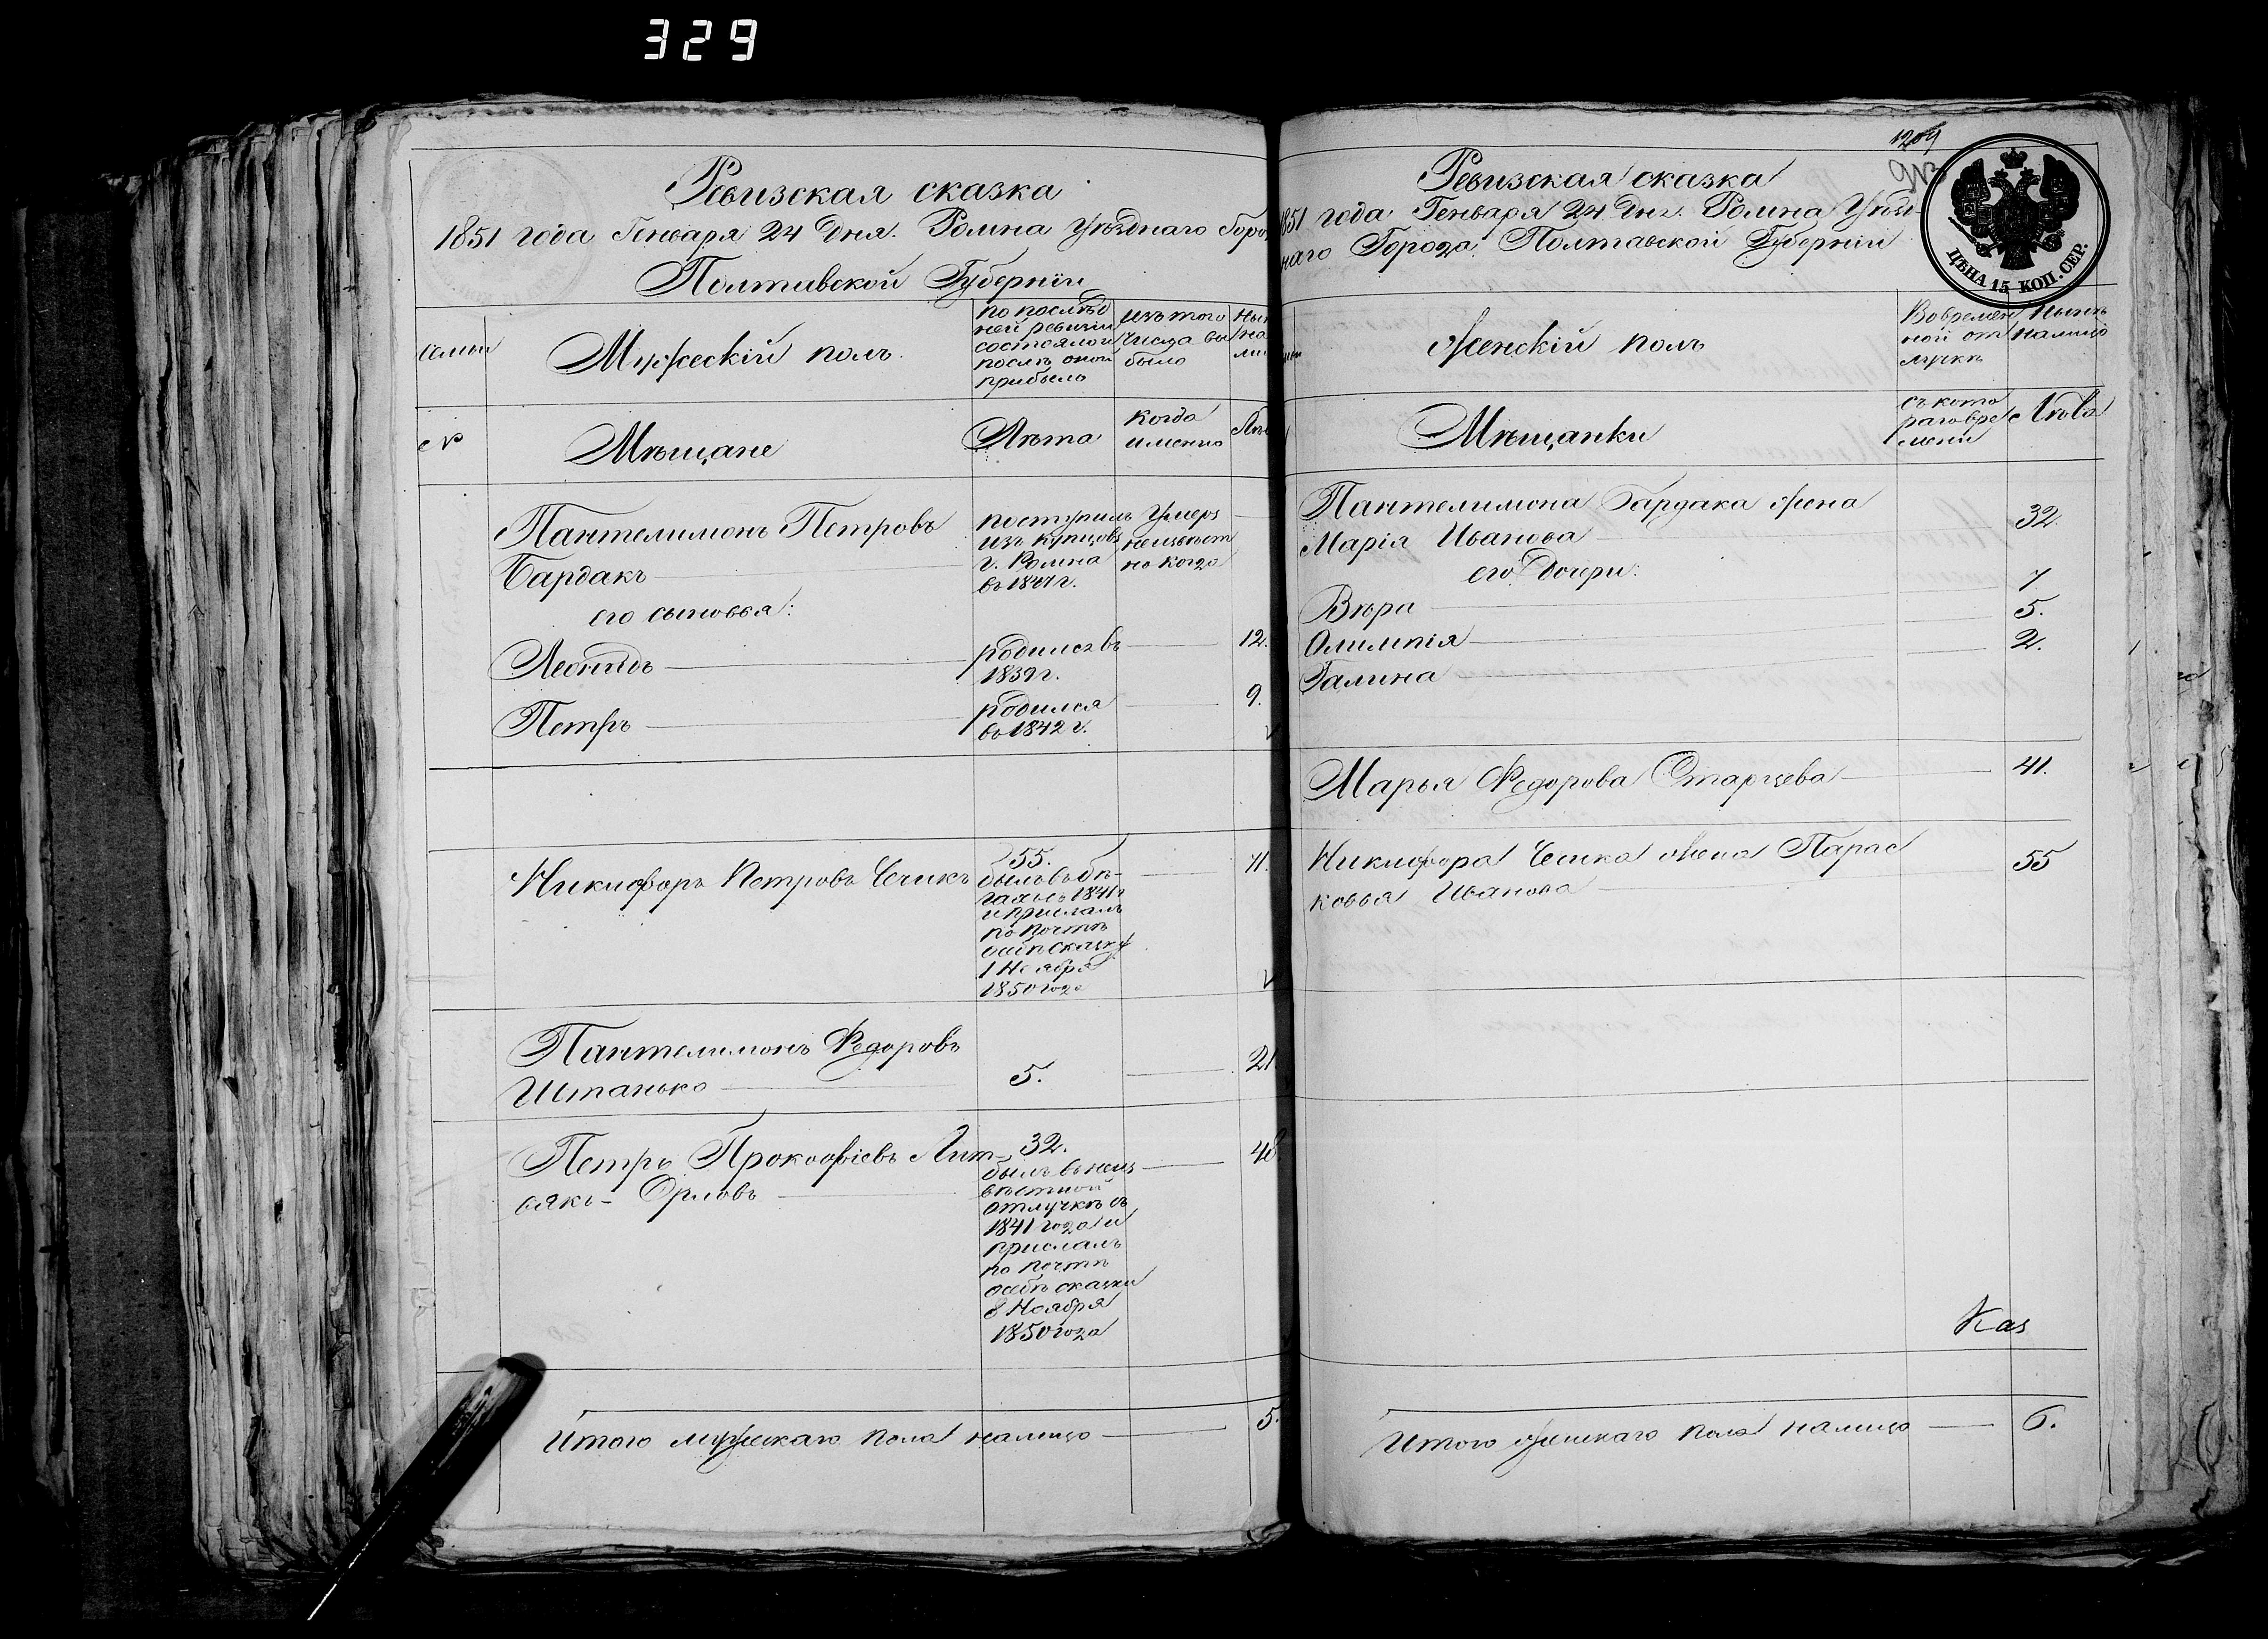 329
Ревизская сказка
1851 года Генваря 24 дня. Ромна Уѣзднаго Горо
Полтавской Губерніи
семьи
Мужескій полъ.
по послѣд
ней ревизіи
состояло и
послѣ оной
прибыло
изъ того
числа вы
было
Ны
на
ли
№
Мѣщане
Лѣта
Когда
именно
Лѣ
Пантелимонъ Петровъ
Бардакъ
поступилъ
изъ купцовъ
г. Ромна
въ 1847 г.
Умеръ
неизвѣст
но когда
его сыновья:
Леонидъ
родился въ
1839 г.
12.
Петръ
родился
въ 1842 г.
9.
Никифоръ Петровъ Чечикъ
55.
былъ въ бѣ-
гахъ съ 1841 г
и прислалъ
по почтѣ
о себѣ сказку
1 Ноября
1850 года
71.
Пантелимонъ Федоровъ
Штанько
5.
21
Петръ Прокофіевъ Лит-
вякъ-Орловъ
32.
былъ въ неиз
вѣстной
отлучкѣ съ
1841 года и
прислалъ
по почтѣ
о себѣ сказки
8 Ноября
1850 года
48
Итого мужескаго пола налицо
5.
1209
Ревизская сказка
1851 года Генваря 24 дня. Ромна Уѣзд-
наго Города Полтавской Губерніи
ЦѢНА 15 КОП. СЕР.
Женскій полъ
Во времен
ной от
лучкѣ
Нынѣ
налицо
Мѣщанки
съ кото
раго вре
мени
Лѣта
Пантелимона Бардака жена
Марія Иванова
32.
его Дочери:
Вѣра
7
Олимпія
5.
Галина
2.
Марья Федорова Старцева
41.
Никифора Чечика жена Парас
ковья Иванова
55
Каз
Итого женскаго пола налицо
6.